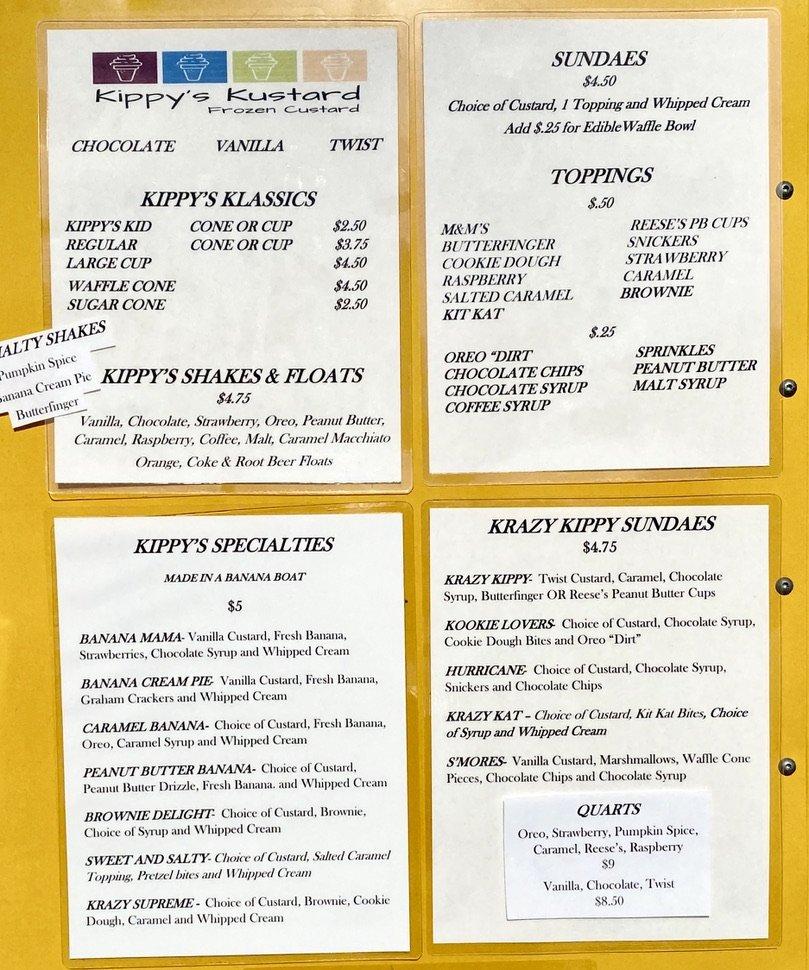 Kippy's Kustard
Frozen Custard
CHOCOLATE VANILLA TWIST
KIPPY'S KLASSICS
KIPPY'S KID CONE OR CUP $2.50
REGULAR CONE OR CUP $3.75
LARGE CUP $4.50
WAFFLE CONE $4.50
SUGAR CONE $2.50
SHAKES
Pumpkin Spice
Cream Pie
Butterfinger
KIPPY'S SHAKES & FLOATS
$4.75
Vanilla, Chocolate, Strawberry, Oreo, Peanut Butter,
Caramel, Raspberry, Coffee, Malt, Caramel Macchiato
Orange, Coke & Root Beer Floats
SUNDAES
$4.50
Choice of Custard, 1 Topping and Whipped Cream
Add $.25 for Edible Waffle Bowl
TOPPINGS
$.50
M&M'S
BUTTERFINGER
COOKIE DOUGH
RASPBERRY
SALTED CARAMEL
KIT KAT
REESE'S PB CUPS
SNICKERS
STRAWBERRY
CARAMEL
BROWNIE
$.25
OREO "DIRT
CHOCOLATE CHIPS
CHOCOLATE SYRUP
COFFEE SYRUP
SPRINKLES
PEANUT BUTTER
MALT SYRUP
KIPPY'S SPECIALTIES
MADE IN A BANANA BOAT
$5
BANANA MAMA- Vanilla Custard, Fresh Banana,
Strawberries, Chocolate Syrup and Whipped Cream
BANANA CREAM PIE- Vanilla Custard, Fresh Banana,
Graham Crackers and Whipped Cream
CARAMEL BANANA- Choice of Custard, Fresh Banana,
Oreo, Caramel Syrup and Whipped Cream
PEANUT BUTTER BANANA- Choice of Custard,
Peanut Butter Drizzle, Fresh Banana. and Whipped Cream
BROWNIE DELIGHT- Choice of Custard, Brownie,
Choice of Syrup and Whipped Cream
SWEET AND SALTY- Choice of Custard, Salted Caramel
Topping, Pretzel bites and Whipped Cream
KRAZY SUPREME - Choice of Custard, Brownie, Cookie
Dough, Caramel and Whipped Cream
KRAZY KIPPY SUNDAES
$4.75
KRAZY KIPPY- Twist Custard, Caramel, Chocolate
Syrup, Butterfinger OR Reese's Peanut Butter Cups
KOOKIE LOVERS- Choice of Custard, Chocolate Syrup,
Cookie Dough Bites and Oreo "Dirt"
HURRICANE- Choice of Custard, Chocolate Syrup,
Snickers and Chocolate Chips
KRAZY KAT – Choice of Custard, Kit Kat Bites, Choice
of Syrup and Whipped Cream
S'MORES- Vanilla Custard, Marshmallows, Waffle Cone
Pieces, Chocolate Chips and Chocolate Syrup
QUARTS
Oreo, Strawberry, Pumpkin Spice,
Caramel, Reese's, Raspberry
$9
Vanilla, Chocolate, Twist
$8.50